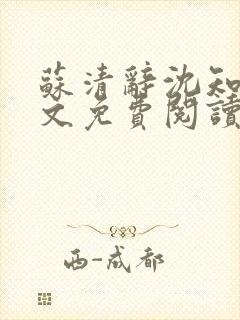 蘇清辭沈知
文免費閱讀
西-成都